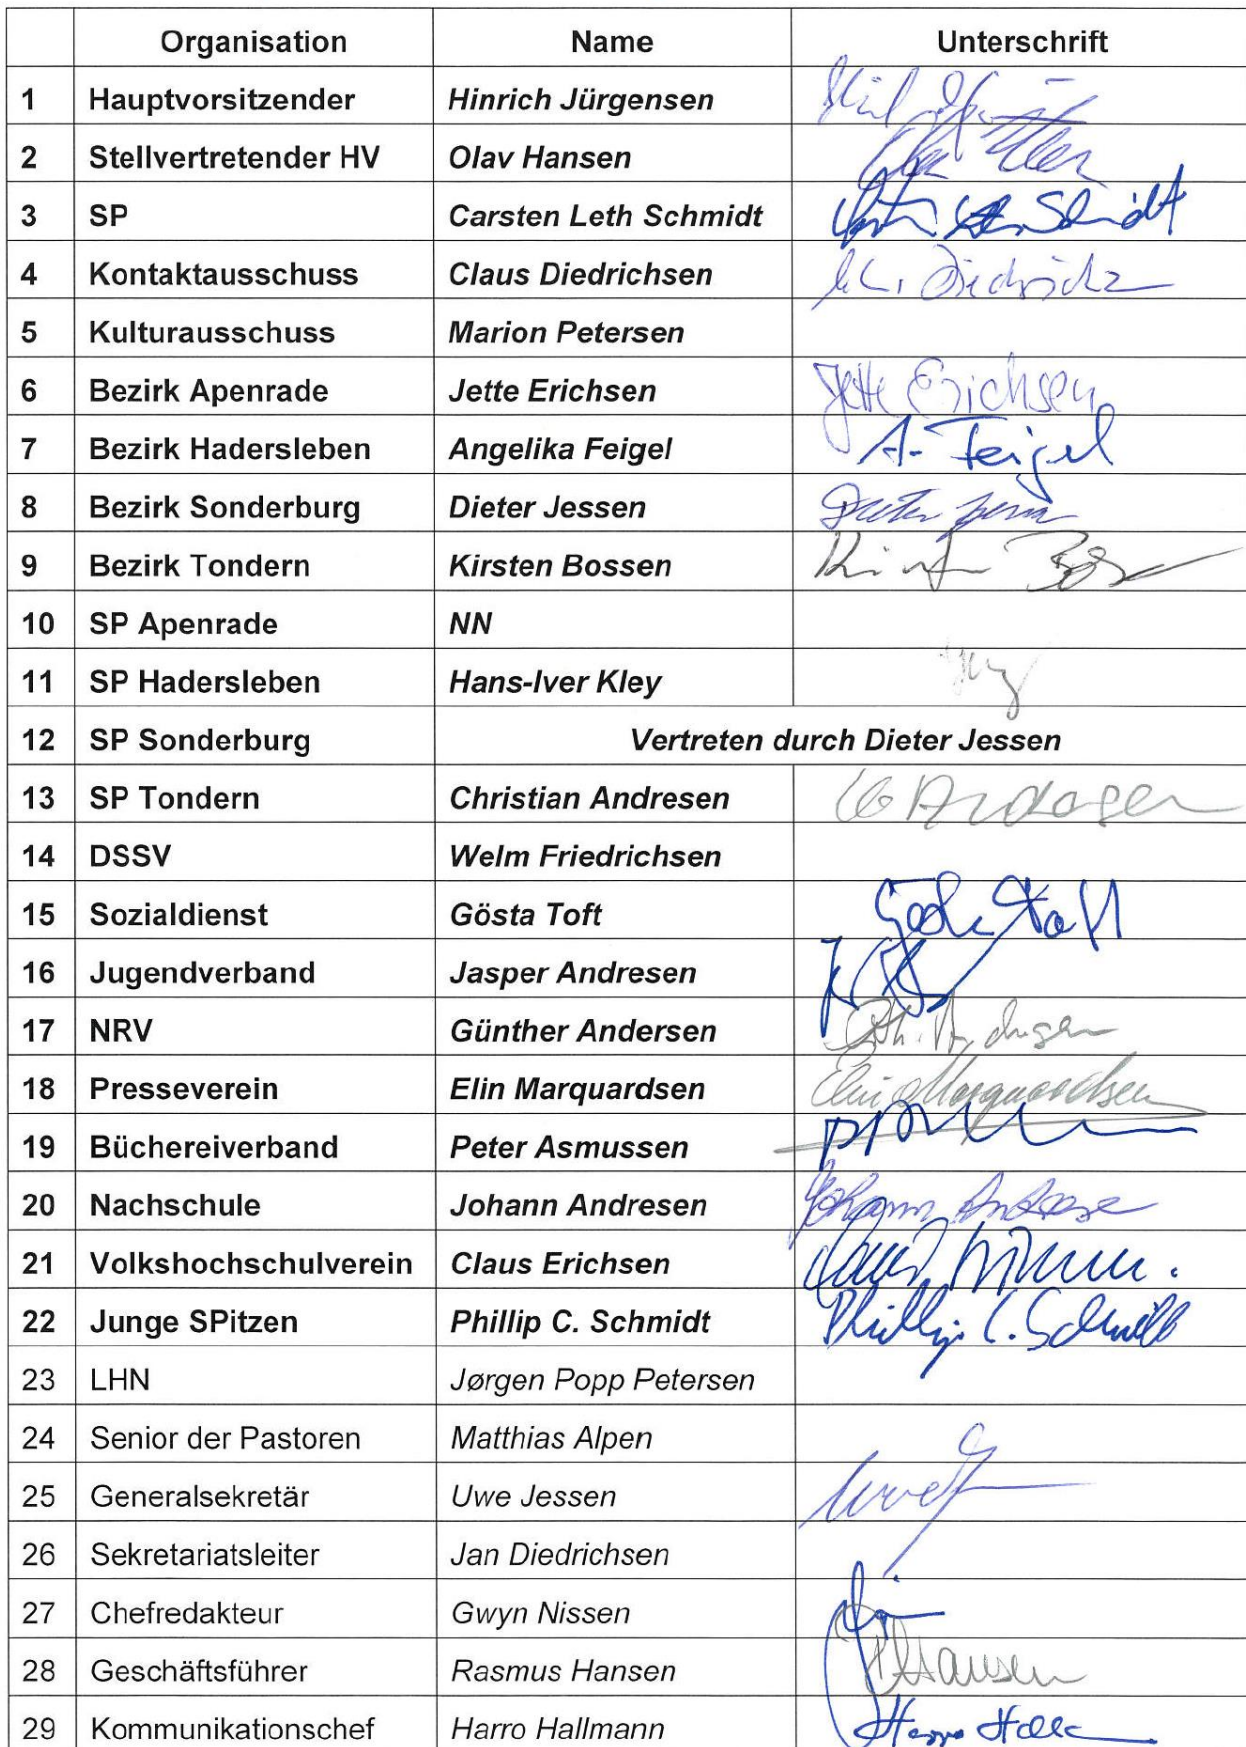 Organisation Name Unterschrift
1 Hauptvorsitzender Hinrich Jürgensen
2 Stellvertretender HV Olav Hansen
3 SP Carsten Leth Schmidt Schmidt
4 Kontaktausschuss Claus Diedrichsen
5 Kulturausschuss Marion Petersen
6 Bezirk Apenrade Jette Erichsen Jette Erichsen
7 Bezirk Hadersleben Angelika Feigel A. Feigel
8 Bezirk Sonderburg Dieter Jessen Dieter
9 Bezirk Tondern Kirsten Bossen
10 SP Apenrade NN
11 SP Hadersleben Hans-Iver Kley
12 SP Sonderburg Vertreten durch Dieter Jessen
13 SP Tondern Christian Andresen
14 DSSV Welm Friedrichsen
15 Sozialdienst Gösta Toft Gösta Toft
16 Jugendverband Jasper Andresen
17 NRV Günther Andersen
18 Presseverein Elin Marquardsen Elin Marquardsen
19 Büchereiverband Peter Asmussen
20 Nachschule Johann Andresen Johann Andresen
21 Volkshochschulverein Claus Erichsen
22 Junge SPitzen Phillip C. Schmidt Phillip C. Schmidt
23 LHN Jørgen Popp Petersen
24 Senior der Pastoren Matthias Alpen
25 Generalsekretär Uwe Jessen
26 Sekretariatsleiter Jan Diedrichsen
27 Chefredakteur Gwyn Nissen
28 Geschäftsführer Rasmus Hansen Hansen
29 Kommunikationschef Harro Hallmann Harro